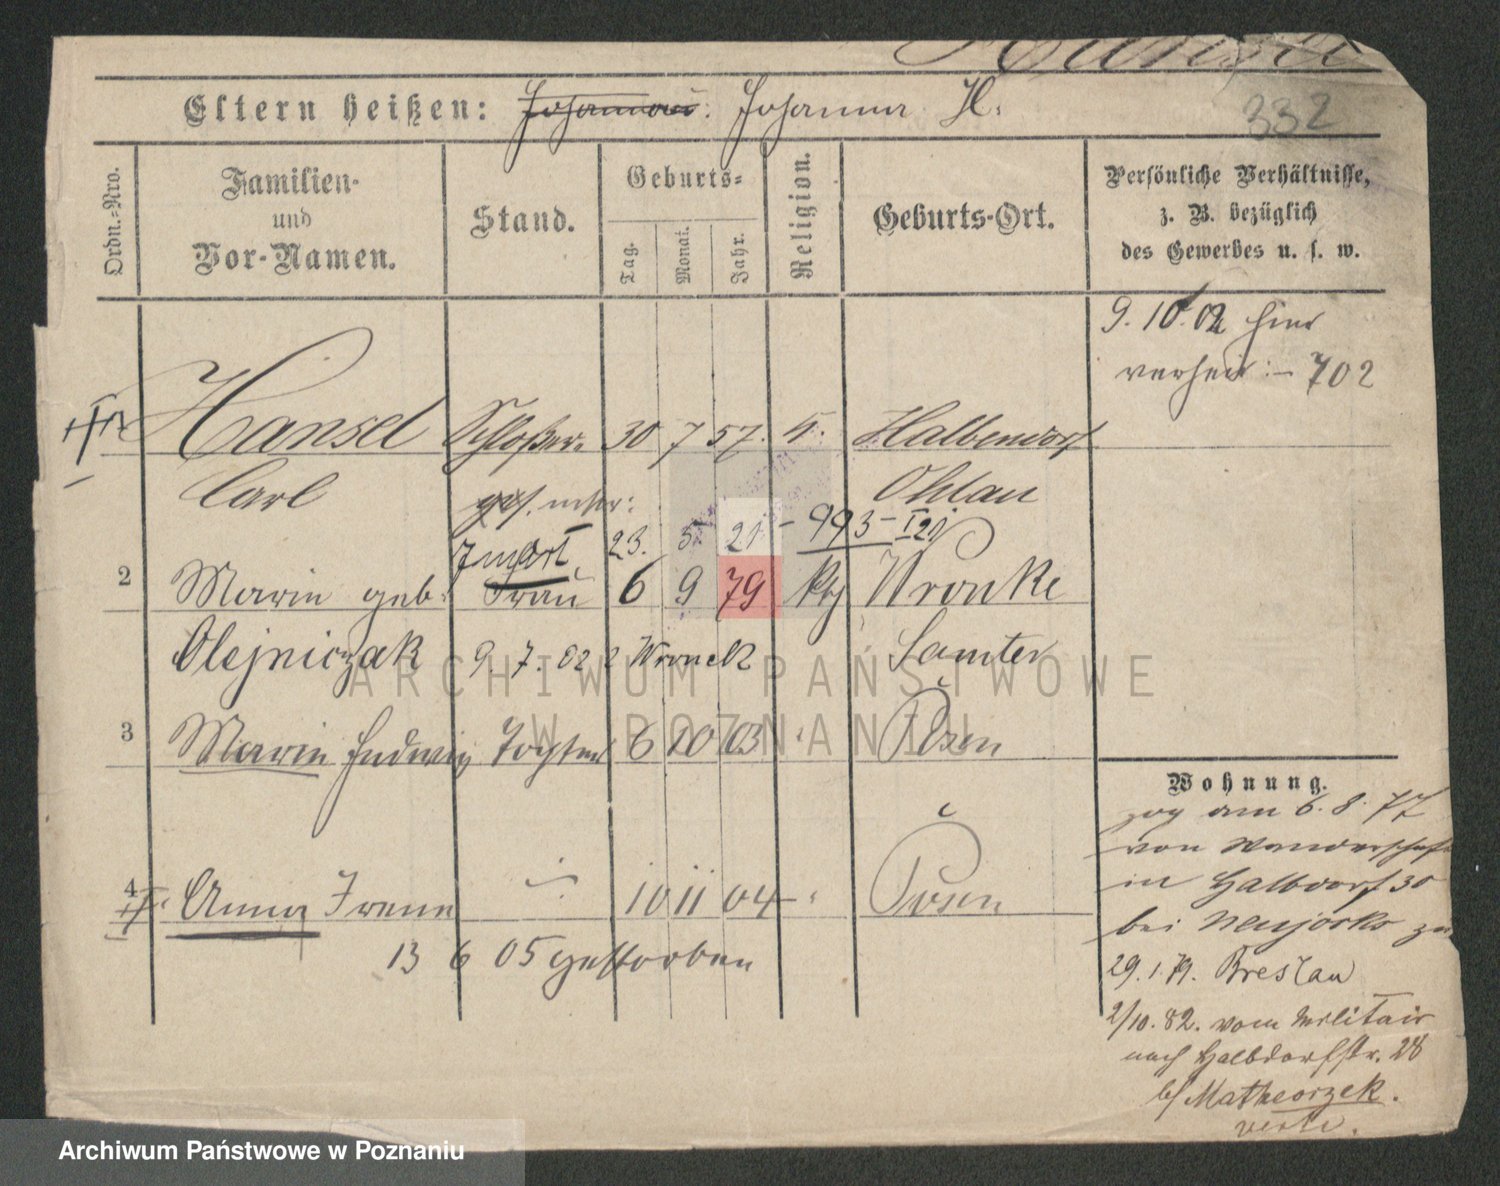 Hansel
332
Eltern heißen: Johanna H.
Ordn.-Nro.
Familien-
und
Vor-Namen.
Stand.
Geburts-
Tag.
Monat.
Jahr.
Religion.
Geburts-Ort.
Persönliche Verhältnisse,
z. B. bezüglich
des Gewerbes u. s. w.
9. 10. 02 hier
verheir: – 702
Hansel Schlosser 30 7 57. K. Halbendorf
Carl Ohlau
23. 5 21 – 993 – I 21
2 Marie geb. Frau 6 9 79 kth Wronke
Olejniczak 9. 7. 82 Wronek Samter
3 Marie Hedwig Tochter 6 10 03 Posen
4 Anna Irene 10 11 04 Posen
13 6 05 gestorben
Wohnung.
zog am 6. 8. 77
von Wanderschaft
in Halbdorf 30
bei zu
29. 1. 79. Breslau
2/10. 82. vom Militair
nach Halbdorfstr. 28
b/ Matheorzek.
verte.
ARCHIWUM PAŃSTWOWE
W POZNANIU
Archiwum Państwowe w Poznaniu